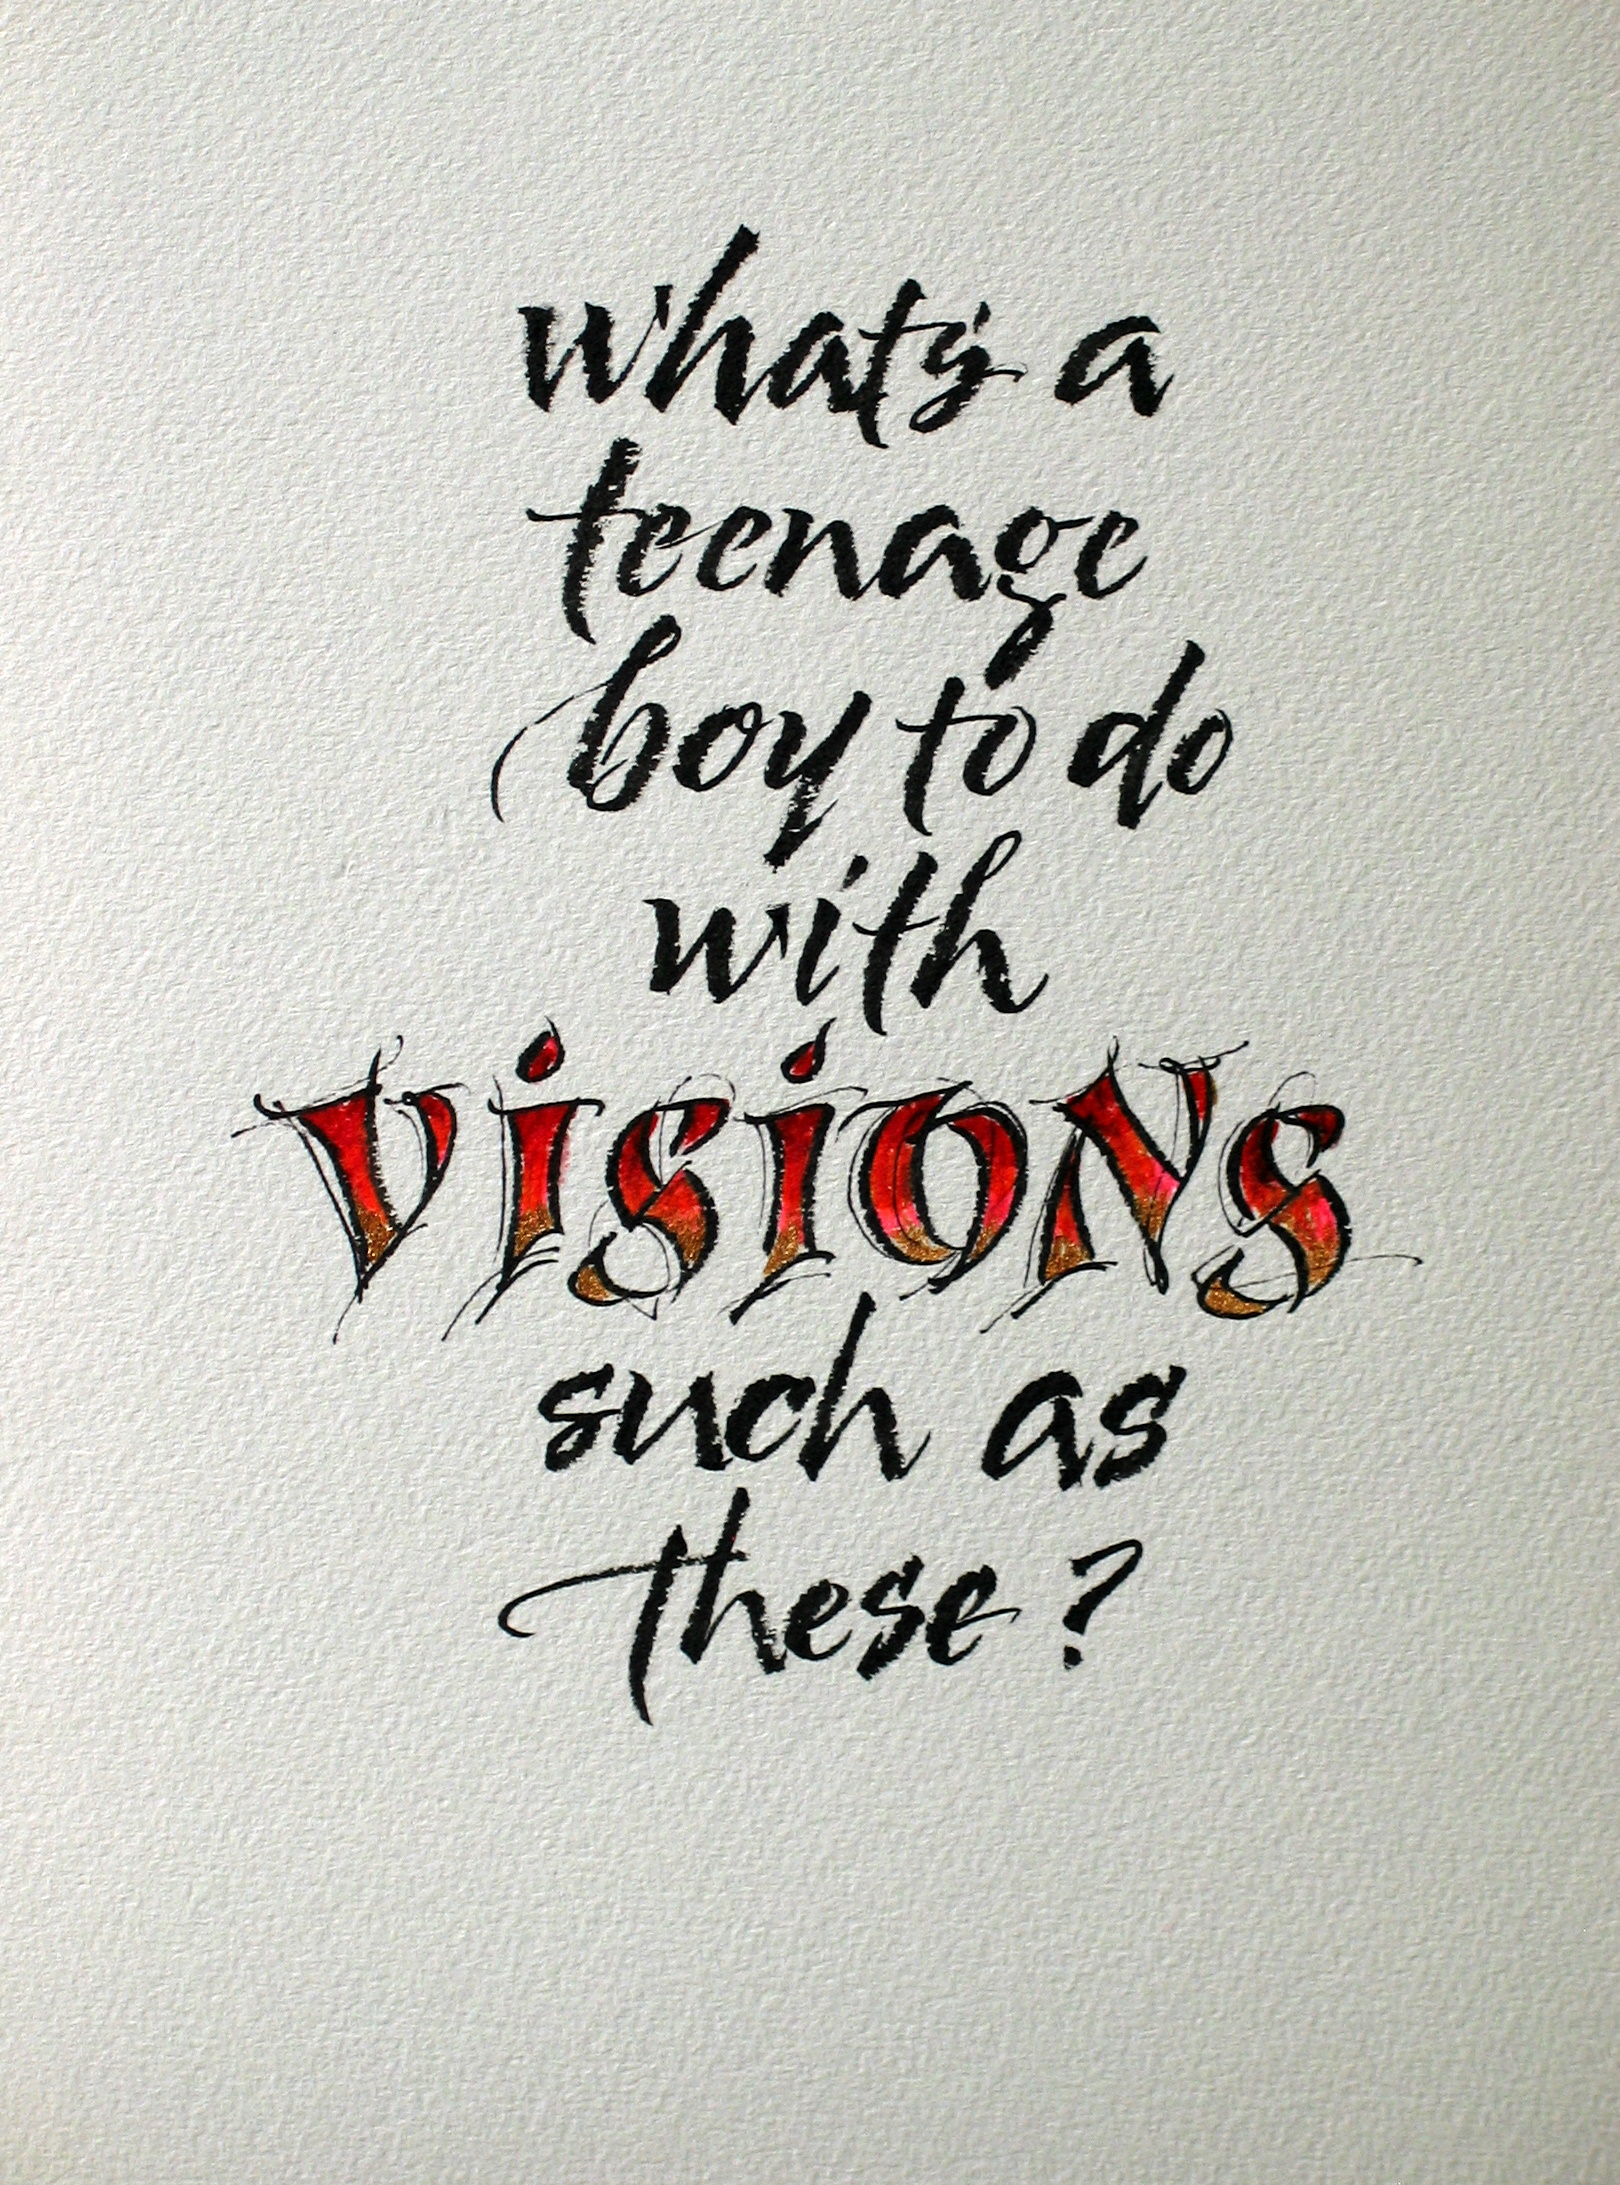 what's a
teenage
boy to do
with
VISIONS
such as
these?